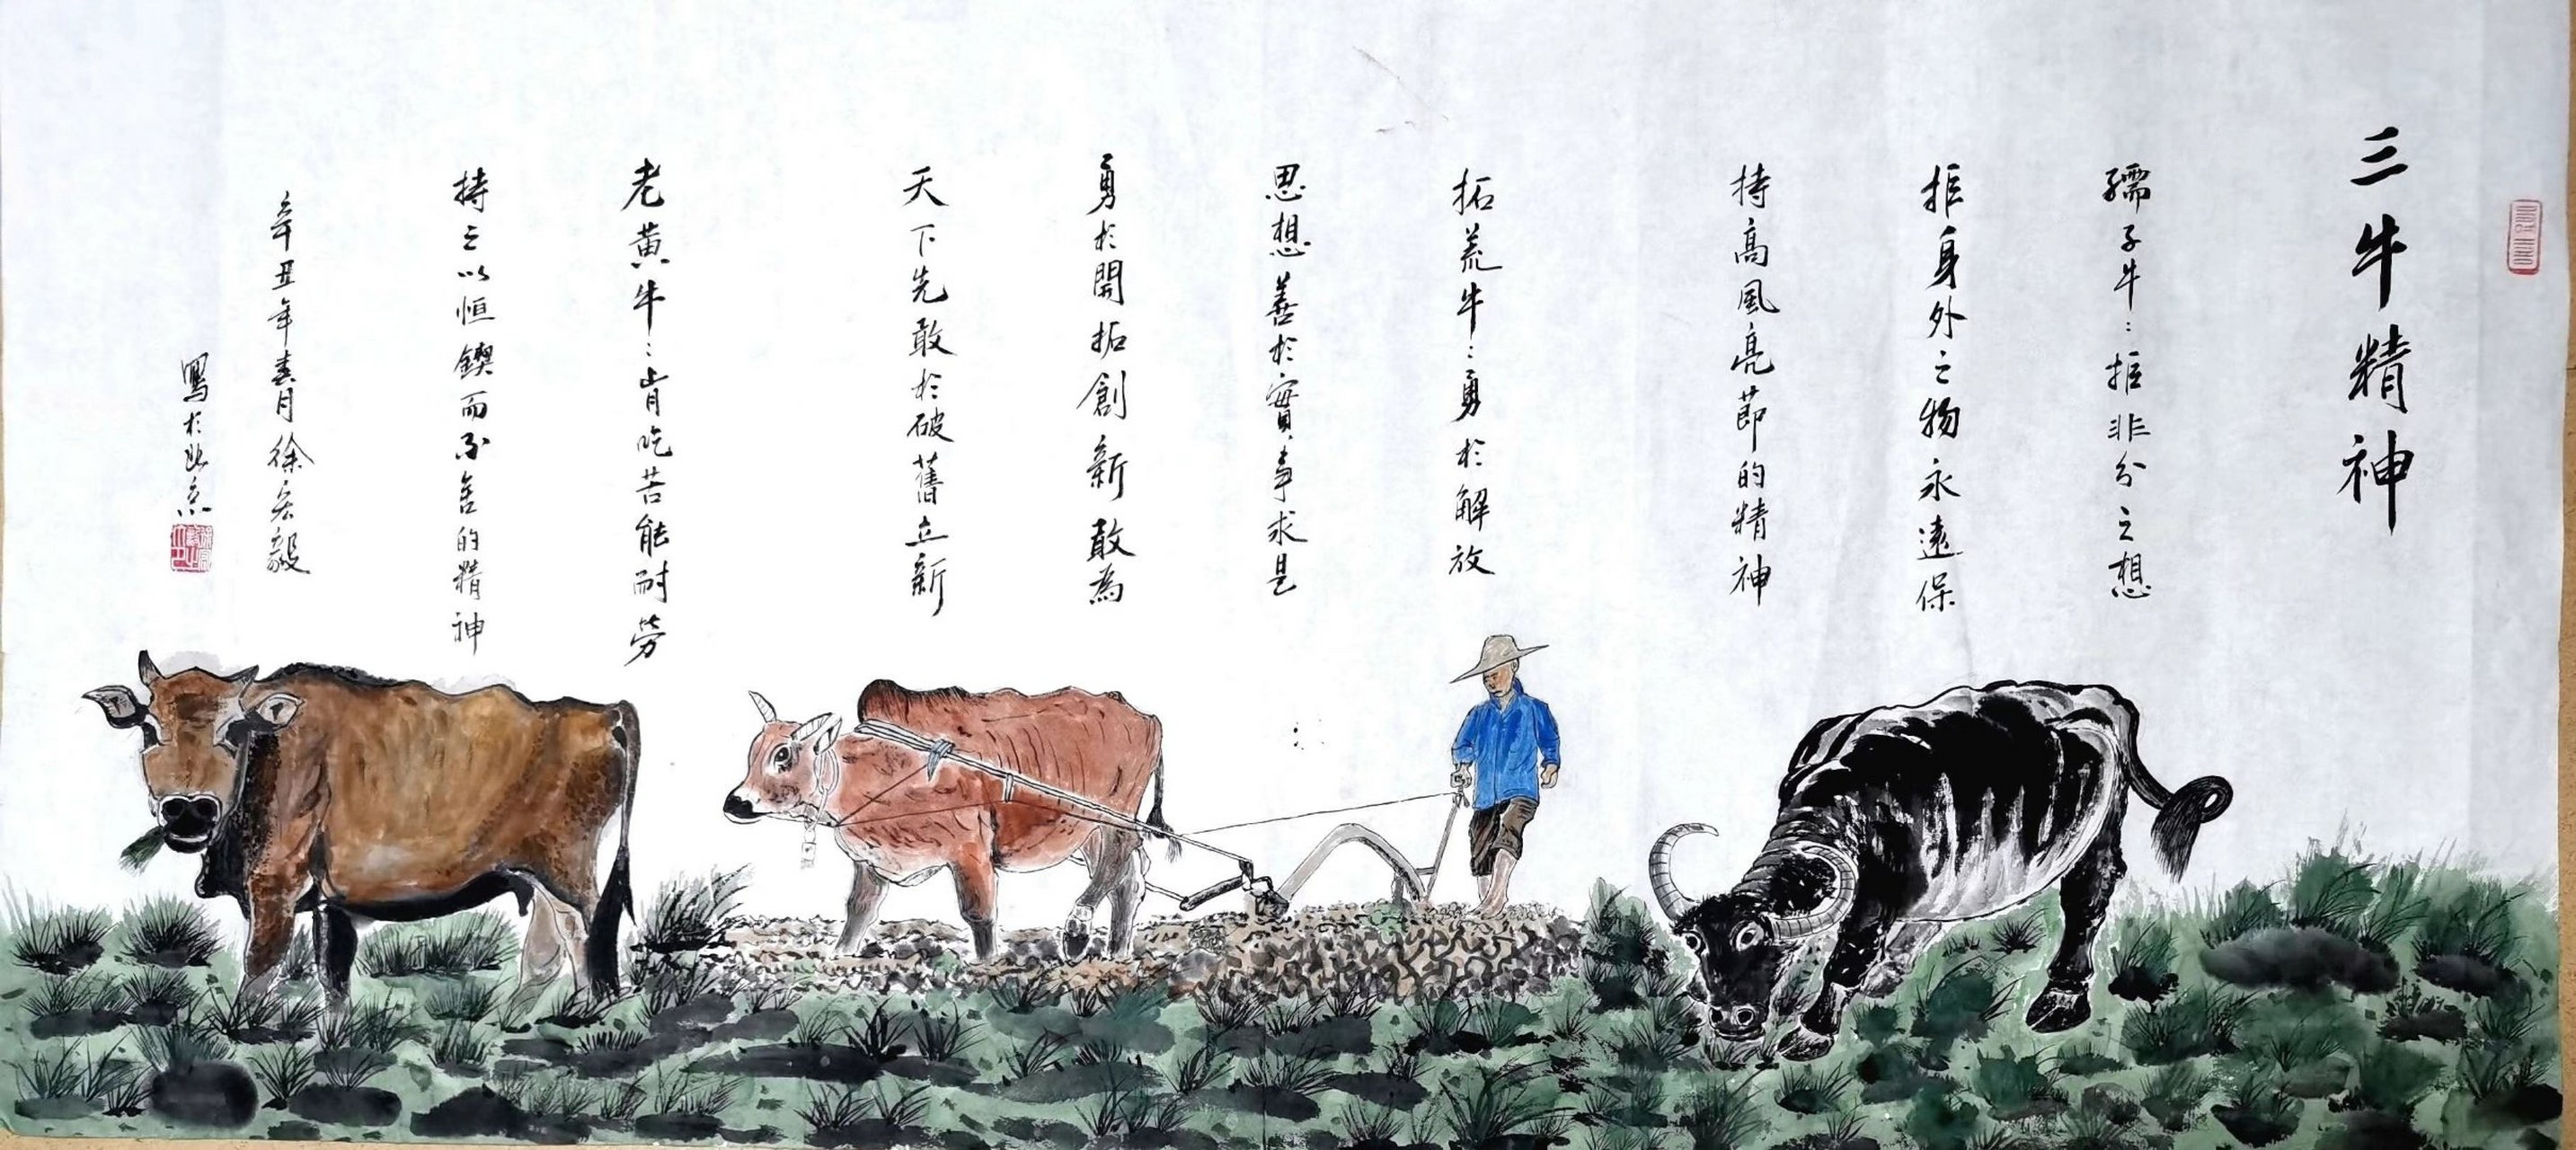 三牛精神
孺子牛：拒非分之想
拒身外之物永遠保
持高風亮節的精神
拓荒牛：勇於解放
思想善於實事求是
勇於開拓創新敢為
天下先敢於破舊立新
老黃牛：肯吃苦能耐勞
持之以恒鍥而不舍的精神
辛丑年春月徐宏毅
寫於北京